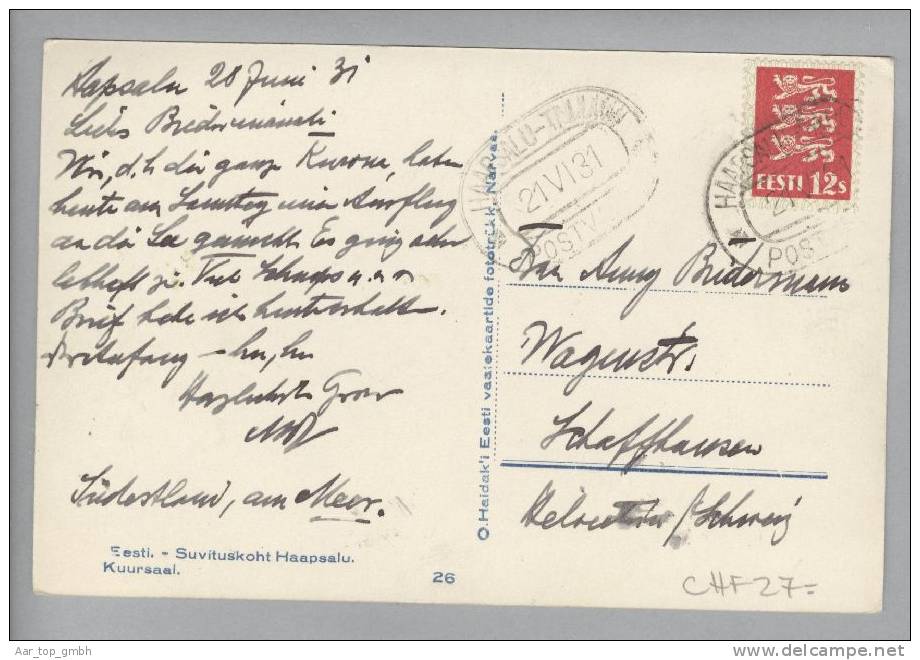 Hapsalu 20 Juni 31
Liebs
Wir, d. h. die ganze haben
heute am Samstag einen Ausflug
an die See gemacht. Es ging sehr
lebhaft zu. Viel Schnaps u.s.w
Brief habe ich heute erhalten.
– hm, hm
Herzlichst
Südestland, am Meer.
Eesti. - Suvituskoht Haapsalu.
Kuursaal.
26
O. Haidak'i Eesti vaatekaartide fototrükk, Narvas.
HAAPSALU-TALLINN
21 VI 31
POSTV
EESTI 12s
HAAPSALU
POST
Frau Anny Bridermann
Wagenstr.
Schaffhausen
Helvetia / Schweiz
CHF 27.-
Aar_top_gmbh
www.delcampe.net